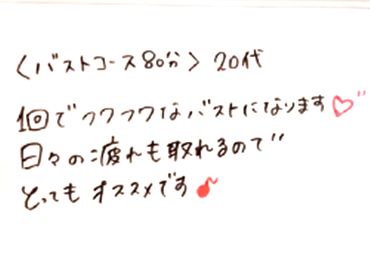 〈バストコース80分〉20代
1回でフワフワなバストになります♡"
日々の疲れも取れるので"
とってもオススメです